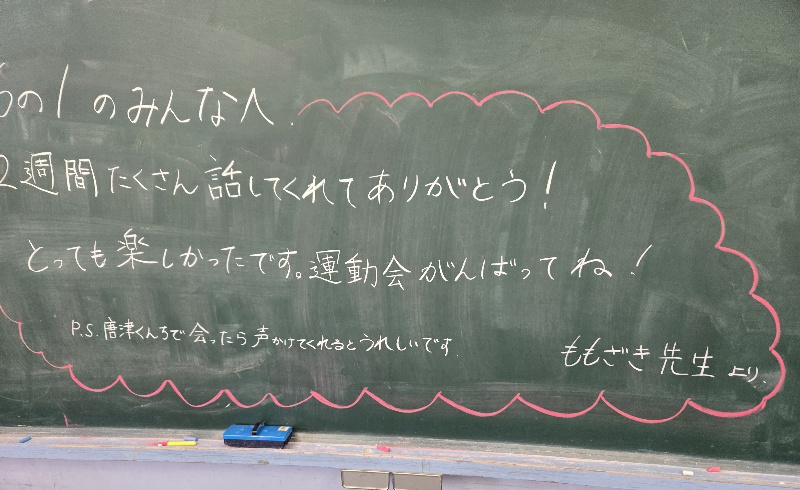 6の1のみんなへ
2週間たくさん話してくれてありがとう!
とっても楽しかったです。運動会がんばってね!
P.S.唐津くんちで会ったら声かけてくれるとうれしいです。
ももざき先生より